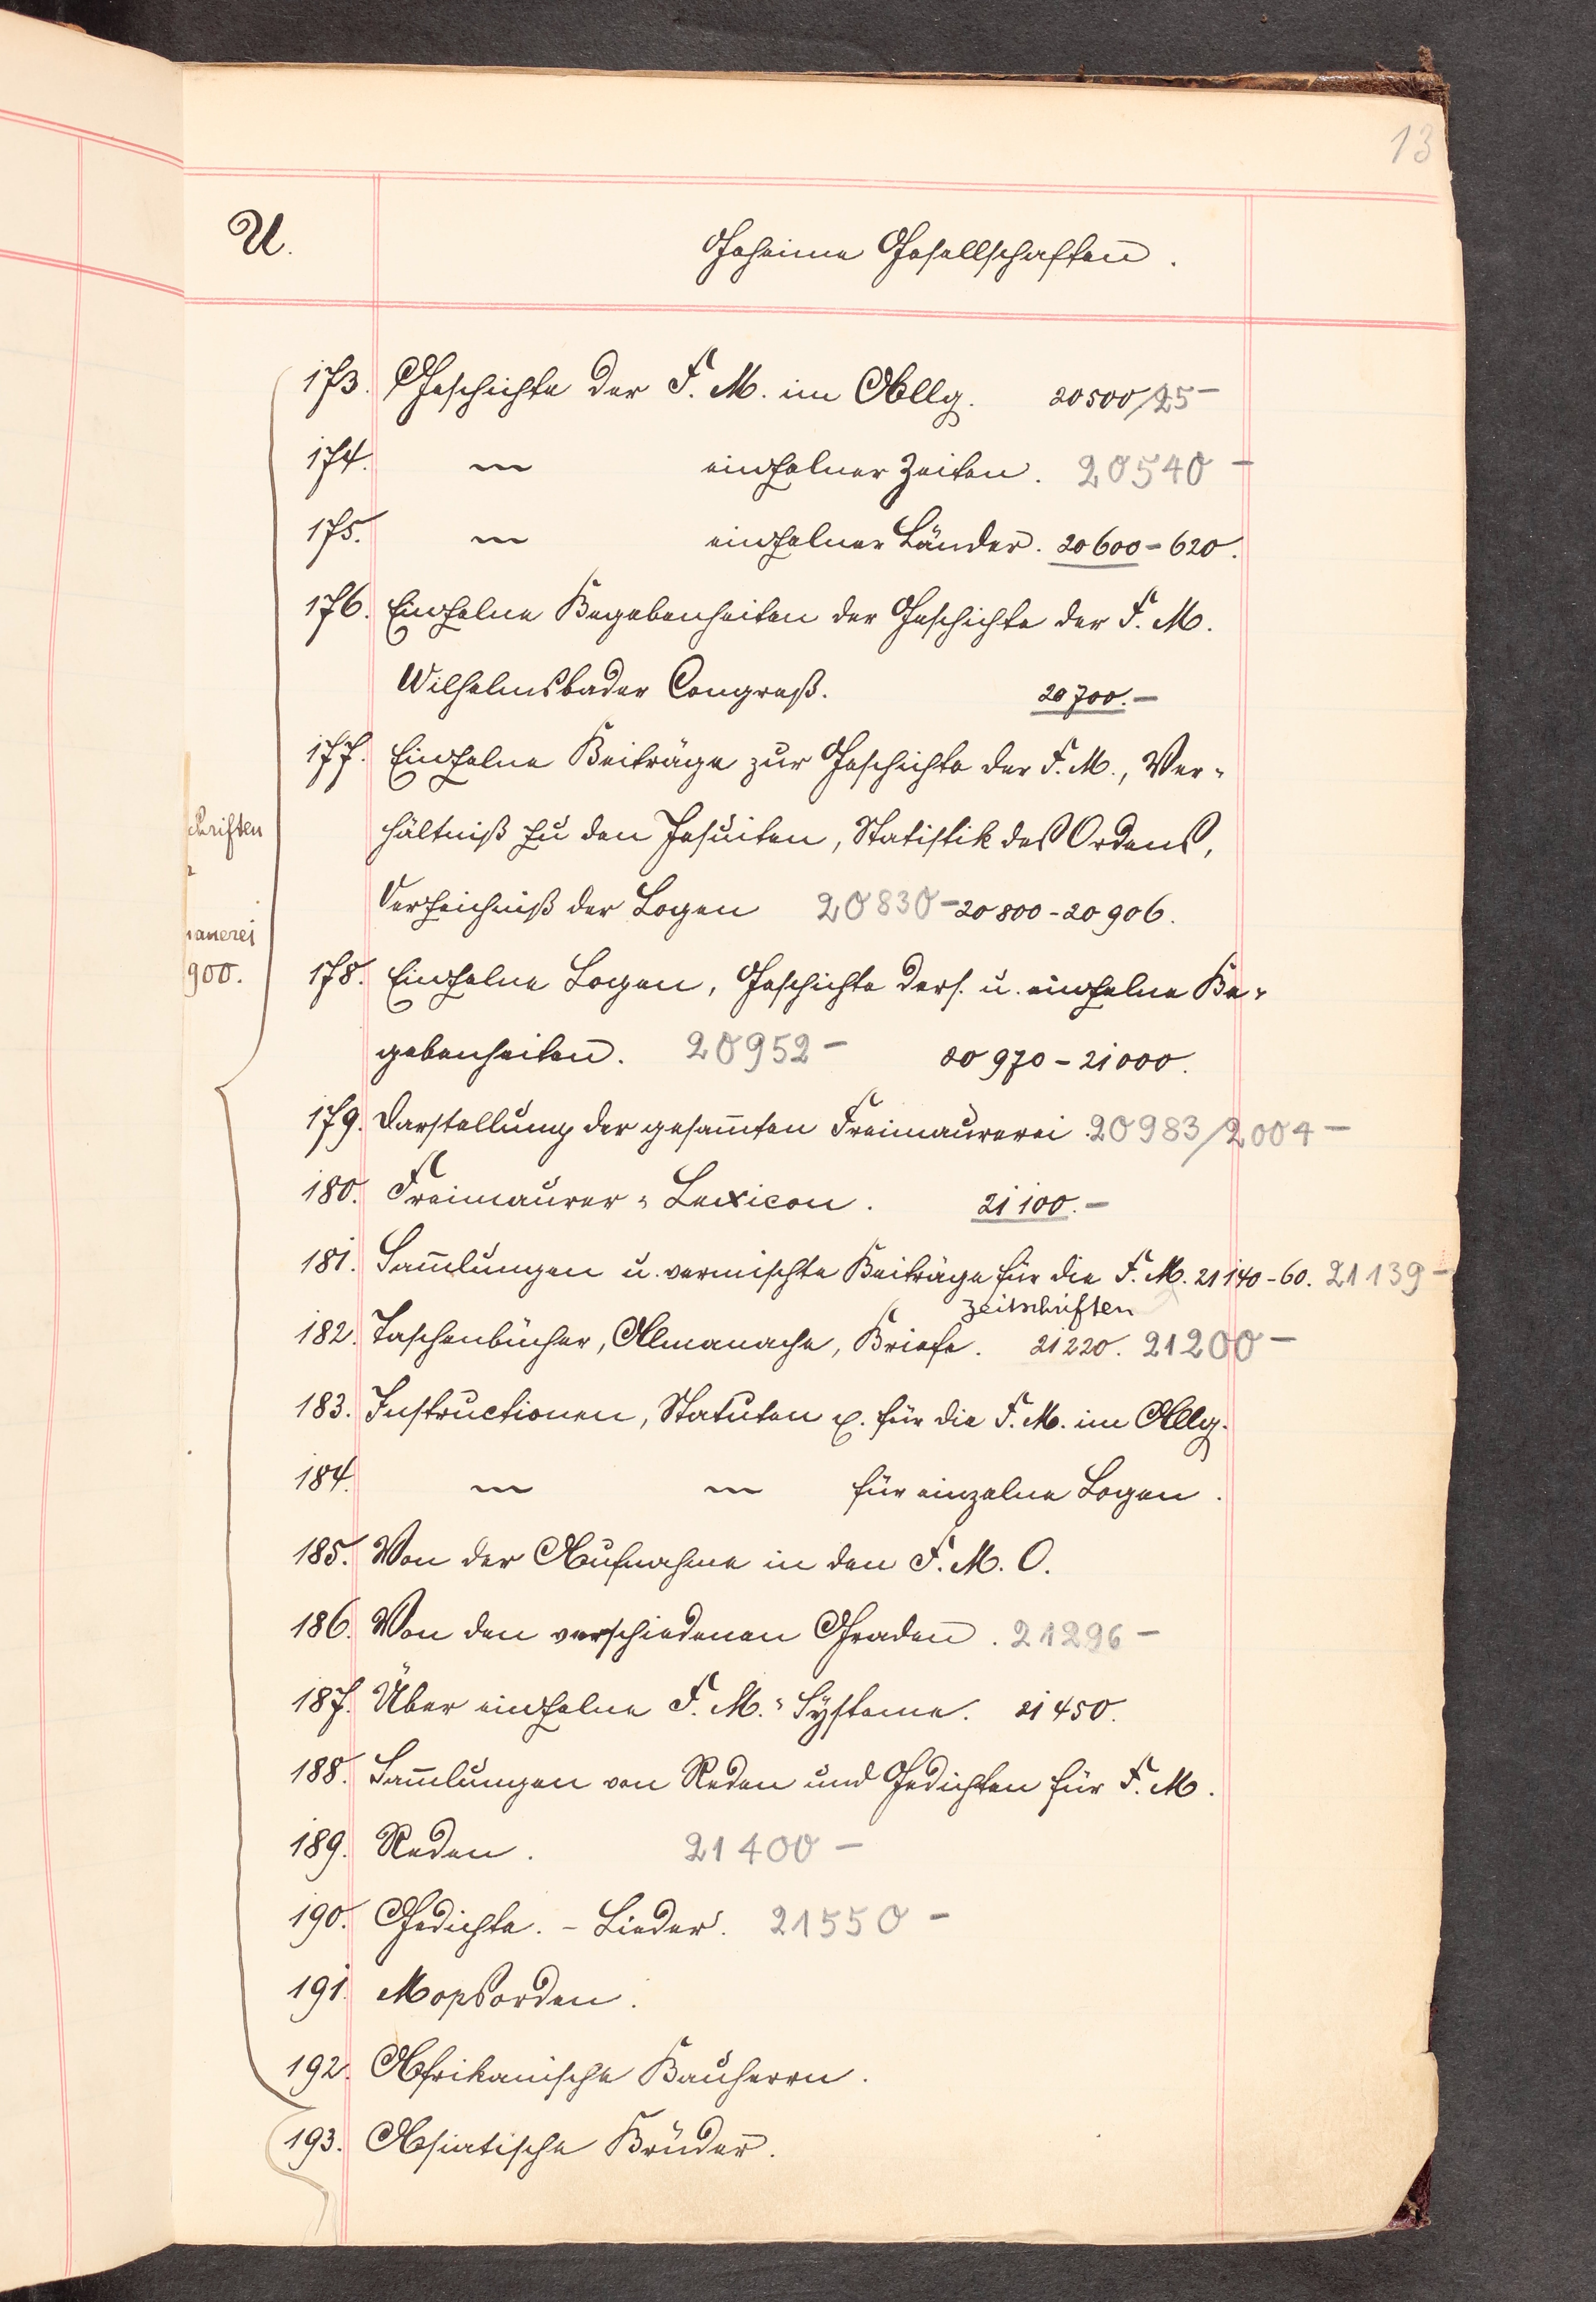 13
U.
Geheime Gesellschaften.
173. Geschichte der F. M. im Allg. 20500/25-
174. — einzelner Zeiten. 20540 -
175. — einzelner Länder. 20600-620.
176. Einzelne Begebenheiten der Geschichte der F. M.
Wilhelmsbader Congreß. 20700.-
177. Einzelne Beiträge zur Geschichte der F. M., Ver-
hältniß zu den Jesuiten, Statistik des Ordens,
Verzeichniß der Logen 20830-20800-20906.
178. Einzelne Logen, Geschichte ders. u. einzelne Be-
gebenheiten. 20952- 20970-21000.
179. Darstellung der gesam̄ten Freimaurerei. 20983/2004-
180. Freimaurer-Lexicon. 21100.-
181. Sam̄lungen u. vermischte Beiträge für die F. M. 21140-60. 21139-
Zeitschriften
182. Taschenbücher, Almanache, Briefe. 21220. 21200-
183. Instructionen, Statuten u. für die F. M. im Allg.
184. — — für einzelne Logen.
185. Von der Aufnahme in den F. M. O.
186. Von den verschiedenen Graden. 21296-
187. Über einzelne F. M.-Systeme. 21450.
188. Sam̄lungen von Reden und Gedichten für F. M.
189. Reden. 21400-
190. Gedichte. - Lieder. 21550-
191. Mopsorden.
192. Afrikanische Bauherrn.
193. Asiatische Brüder.
chriften
900.